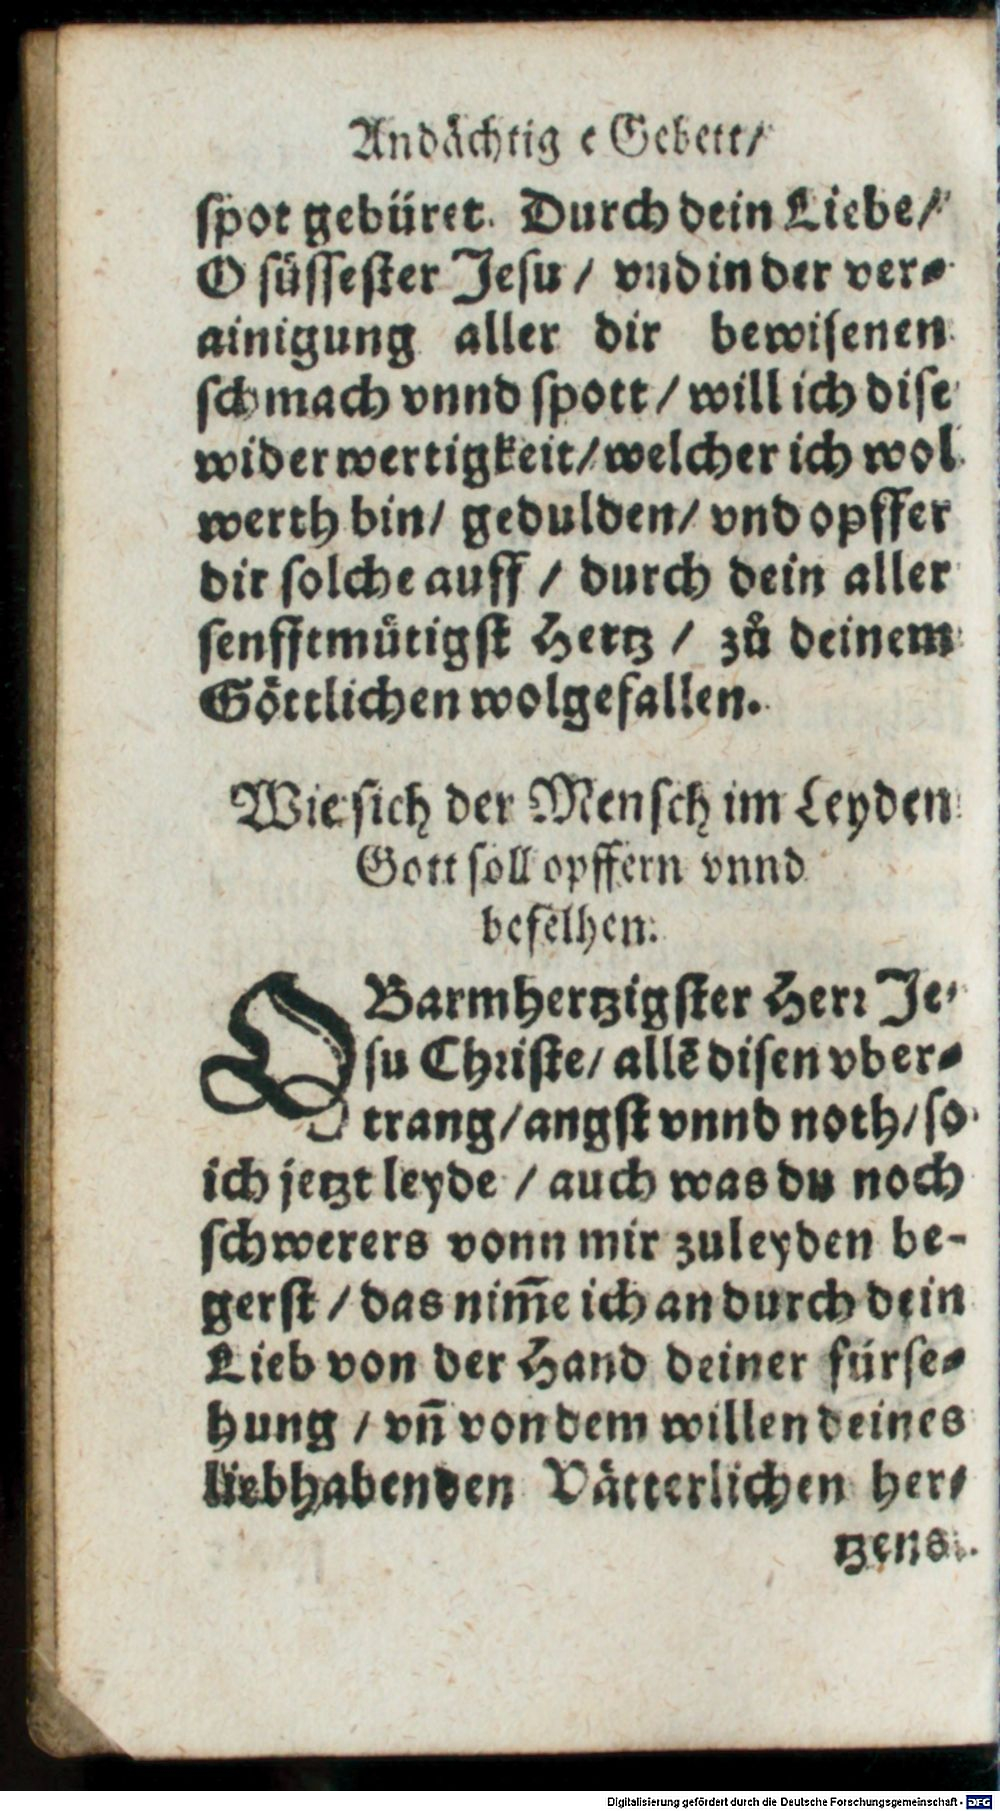 Andächtig e Gebett/
spot gebüret. Durch dein Liebe/
O süssester Jesu / vnd in der ver-
ainigung aller dir bewisenen
schmach vnnd spott / will ich dise
widerwertigkeit / welcher ich wol
werth bin / gedulden / vnd opffer
dir solche auff / durch dein aller
senfftmütigst Hertz / zů deinem
Göttlichen wolgefallen.
Wie sich der Mensch im Leyden
Gott soll opffern vnnd
befelhen.
O Barmhertzigster Herr Je-
su Christe / allē disen vber-
trang / angst vnnd noth / so
ich jetzt leyde / auch was du noch
schwerers vonn mir zuleyden be-
gerst / das nim̄e ich an durch dein
Lieb von der Hand deiner fürse-
hung / vn̄ von dem willen deines
liebhabenden Vätterlichen her-
tzens.
Digitalisierung gefördert durch die Deutsche Forschungsgemeinschaft - DFG